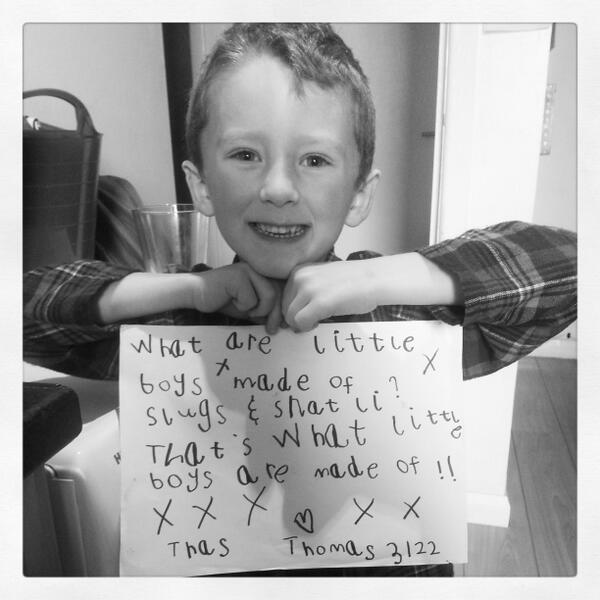 What are little
boys made of ?
slugs & shat li
That's what little
boys are made of !!
X X X ♡ X X
Thas Thomas 3122